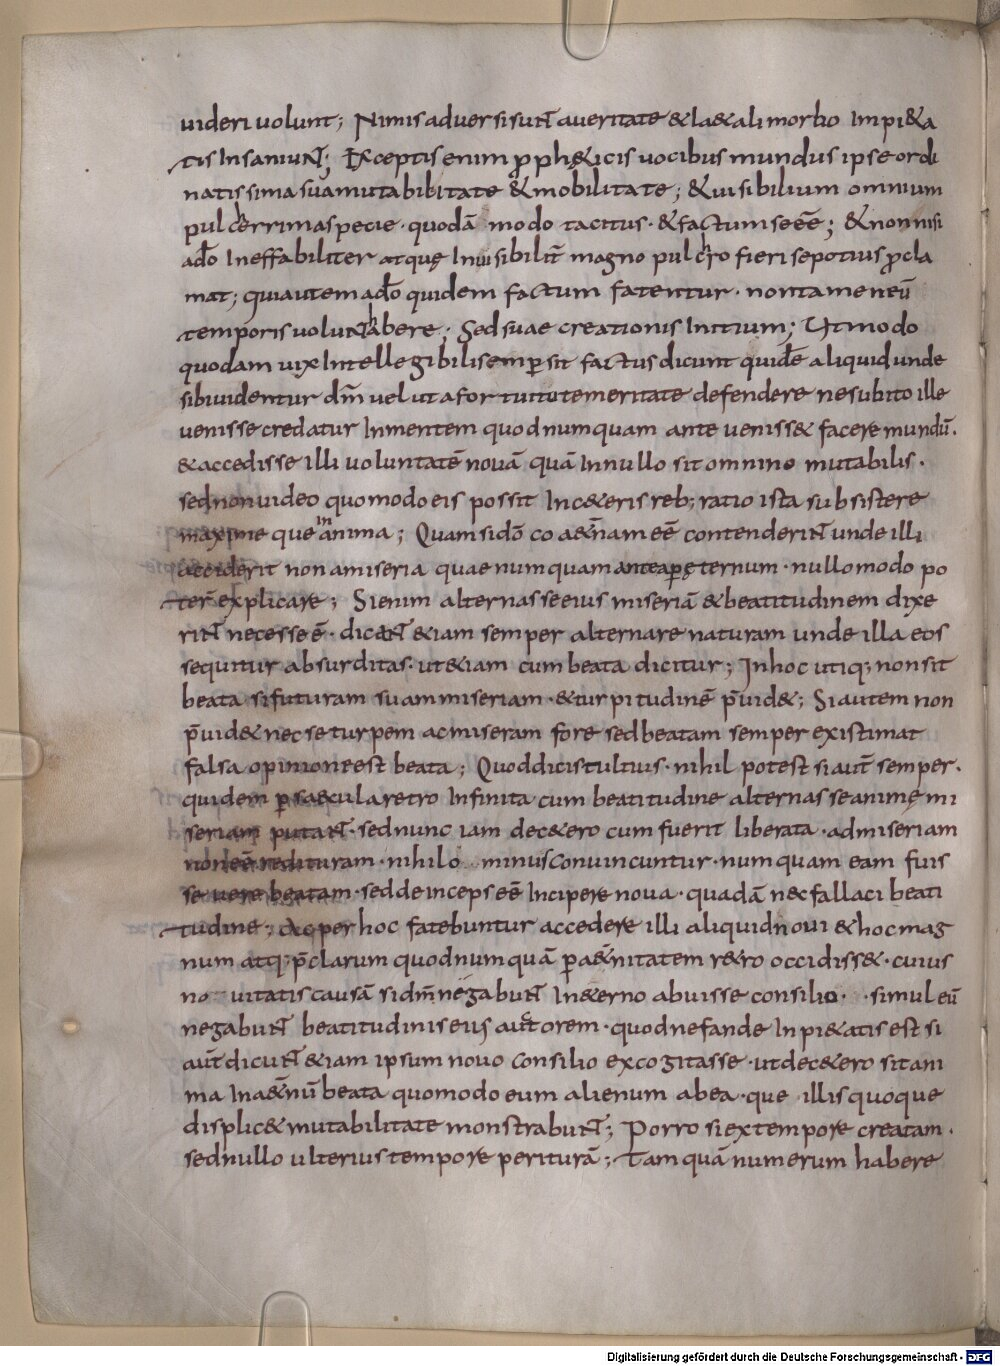 uideri uolunt; Nimis aduersi sunt a ueritate & la&ali morbo Impi&a
tis Insaniunt; Exceptis enim pph&icis uocibus mundus ipse ordi
natissima sua mutabibitate & mobilitate; & uisibilium omnium
pulcherrima specie · quodā modo tacitus · & factum se eē; & non nisi
a dō Ineffabiliter atque Inuisibilit̄ magno pulchro fieri se potius p̄cla
mat; qui autem a dō quidem factum fatentur · non tamen eū
temporis uolunt habere; Sed suae creationis Initium; Ut modo
quodam uix Intellegibili semp sit factus dicunt quidē aliquid unde
sibi uidentur dm̄ uel ut a fortuitu temeritate defendere ne subito ille
uenisse credatur In mentem quod numquam ante ueniss& facere mundū.
& accedisse illi uoluntatē nouā quā In nullo sit omnino mutabilis.
sed non uideo quomodo eis possit In c&eris reb; ratio ista subsistere
maxime que In anima; Quam si dō co a&nam eē contenderint unde illi
acciderit noua miseria quae numquam antea p &ernum · nullo modo po
ter̄ explicare; Si enim alternasse eius miseriā & beatitudinem dixe
rint necesse ē · dicant &iam semper alternare naturam unde illa eos
sequitur absurditas · ut &iam cum beata dicitur; In hoc utiq; non sit
beata si futuram suam miseriam · & turpitudinē p̄uid&; Si autem non
p̄uid& nec se turpem ac miseram fore sed beatam semper existimat
falsa opinione est beata; Quod dici stultius · nihil potest si aut̄ semper.
quidem p saecula retro Infinita cum beatitudine alternasse anime mi
seriam putant · sed nunc iam dec&ero cum fuerit liberata · ad miseriam
non eē redituram · nihilo minus conuincuntur · numquam eam fuis
se uere beatam · sed deinceps eē Incipere noua · quadā nec fallaci beati
tudine; Ac per hoc fatebuntur accedere illi aliquid noui & hoc mag
num atq; p̄clarum quod numquā p a&nitatem r&ro occidiss& · cuius
no uitatis causā si dm̄ negabunt In &erno abuisse consilio · simul eū
negabunt beatitudinis eius auctorem · quod nefande Inpi&atis est si
aut̄ dicunt &iam ipsum nouo consilio excogitasse · ut dec&ero sit ani
ma In a&nū beata quomodo eum alienum abea · que illis quoque
displic& mutabilitate monstrabunt; Porro si ex tempore creatam.
sed nullo ulterius tempore periturā; Tam quā numerum habere
Digitalisierung gefördert durch die Deutsche Forschungsgemeinschaft - DFG